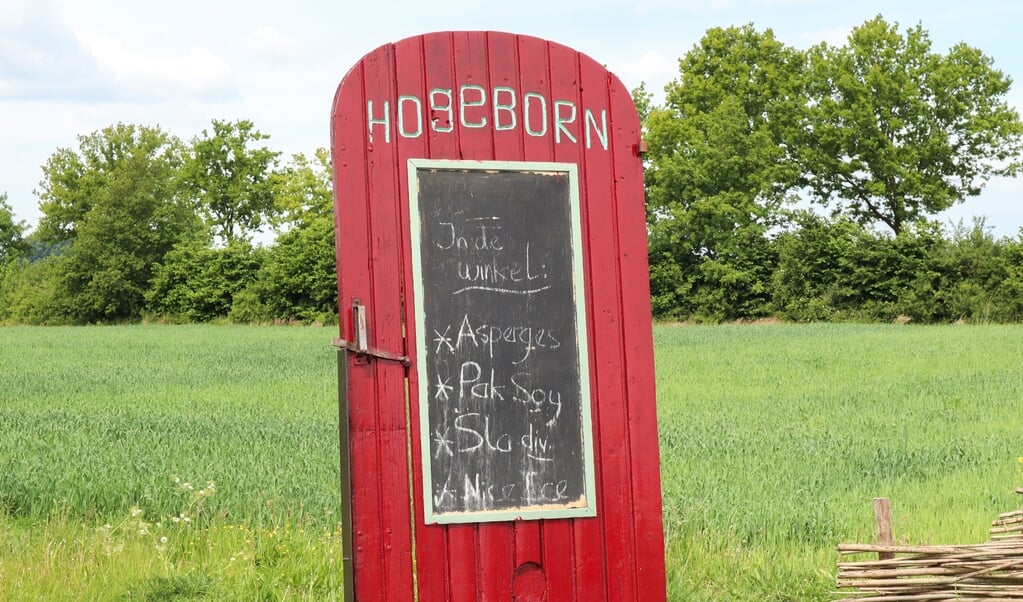 HOgeBORN
In de
winkel:
* Asperges
* Pak Soy
* Sla div.
* Nice Ice